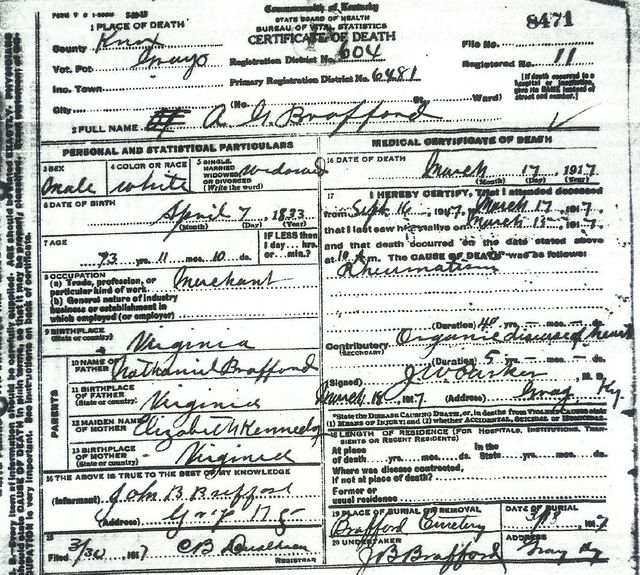 Commonwealth of Kentucky
STATE BOARD OF HEALTH
BUREAU OF VITAL STATISTICS
CERTIFICATE OF DEATH
8471
1 PLACE OF DEATH
County Knox
Vot. Pct Grays
Inc. Town
City
Registration District No. 604
Primary Registration District No. 6481
(No. St. Ward)
File No.
Registered No. 11
[If death occurred in a hospital or institution, give its NAME instead of street and number.]
2 FULL NAME A. G. Brafford
PERSONAL AND STATISTICAL PARTICULARS
3 SEX Male
4 COLOR OR RACE white
5 SINGLE, MARRIED WIDOWED OR DIVORCED (Write the word) widowed
6 DATE OF BIRTH
April 7, 1833
(Month) (Day) (Year)
7 AGE
73 yrs. 11 mos. 10 ds.
IF LESS than 1 day... hrs. or... min.?
8 OCCUPATION
(a) Trade, profession, or particular kind of work Merchant
(b) General nature of industry business or establishment in which employed (or employer)
9 BIRTHPLACE
(State or country) Virginia
PARENTS
10 NAME OF FATHER Nathaniel Brafford
11 BIRTHPLACE OF FATHER (State or country) Virginia
12 MAIDEN NAME OF MOTHER Elizabeth Kennedy
13 BIRTHPLACE OF MOTHER (State or country) Virginia
14 THE ABOVE IS TRUE TO THE BEST OF MY KNOWLEDGE
(Informant) John B Brafford
(Address)
15
Filed 3/30, 1917 C B Donaldson
REGISTRAR
MEDICAL CERTIFICATE OF DEATH
16 DATE OF DEATH
March 17 1917
(Month) (Day) (Year)
17 I HEREBY CERTIFY, That I attended deceased
from Sept 16, 1917, March 17, 1917
that I last saw h alive on March 15, 1917
and that death occurred on the date stated above
at 10 m. The CAUSE OF DEATH* was as follows:
Rheumatism
(Duration) 40 yrs. mos. ds.
Contributory Organic disease of heart
(SECONDARY)
(Duration) 5 yrs. mos. ds.
(Signed) J W Parker, M. D.
March 18, 1917 (Address) Gray, Ky.
*State the DISEASE CAUSING DEATH, or, in deaths from VIOLENT CAUSES state (1) MEANS OF INJURY; and (2) whether ACCIDENTAL, SUICIDAL or HOMICIDAL.
18 LENGTH OF RESIDENCE (FOR HOSPITALS, INSTITUTIONS, TRANSIENTS OR RECENT RESIDENTS)
At place of death... yrs... mos... ds. In the State... yrs... mos... ds.
Where was disease contracted, if not at place of death?
Former or usual residence
19 PLACE OF BURIAL OR REMOVAL
Brafford Cemetery
DATE OF BURIAL
3/18 1917
20 UNDERTAKER
J B Brafford
ADDRESS
Gray Ky